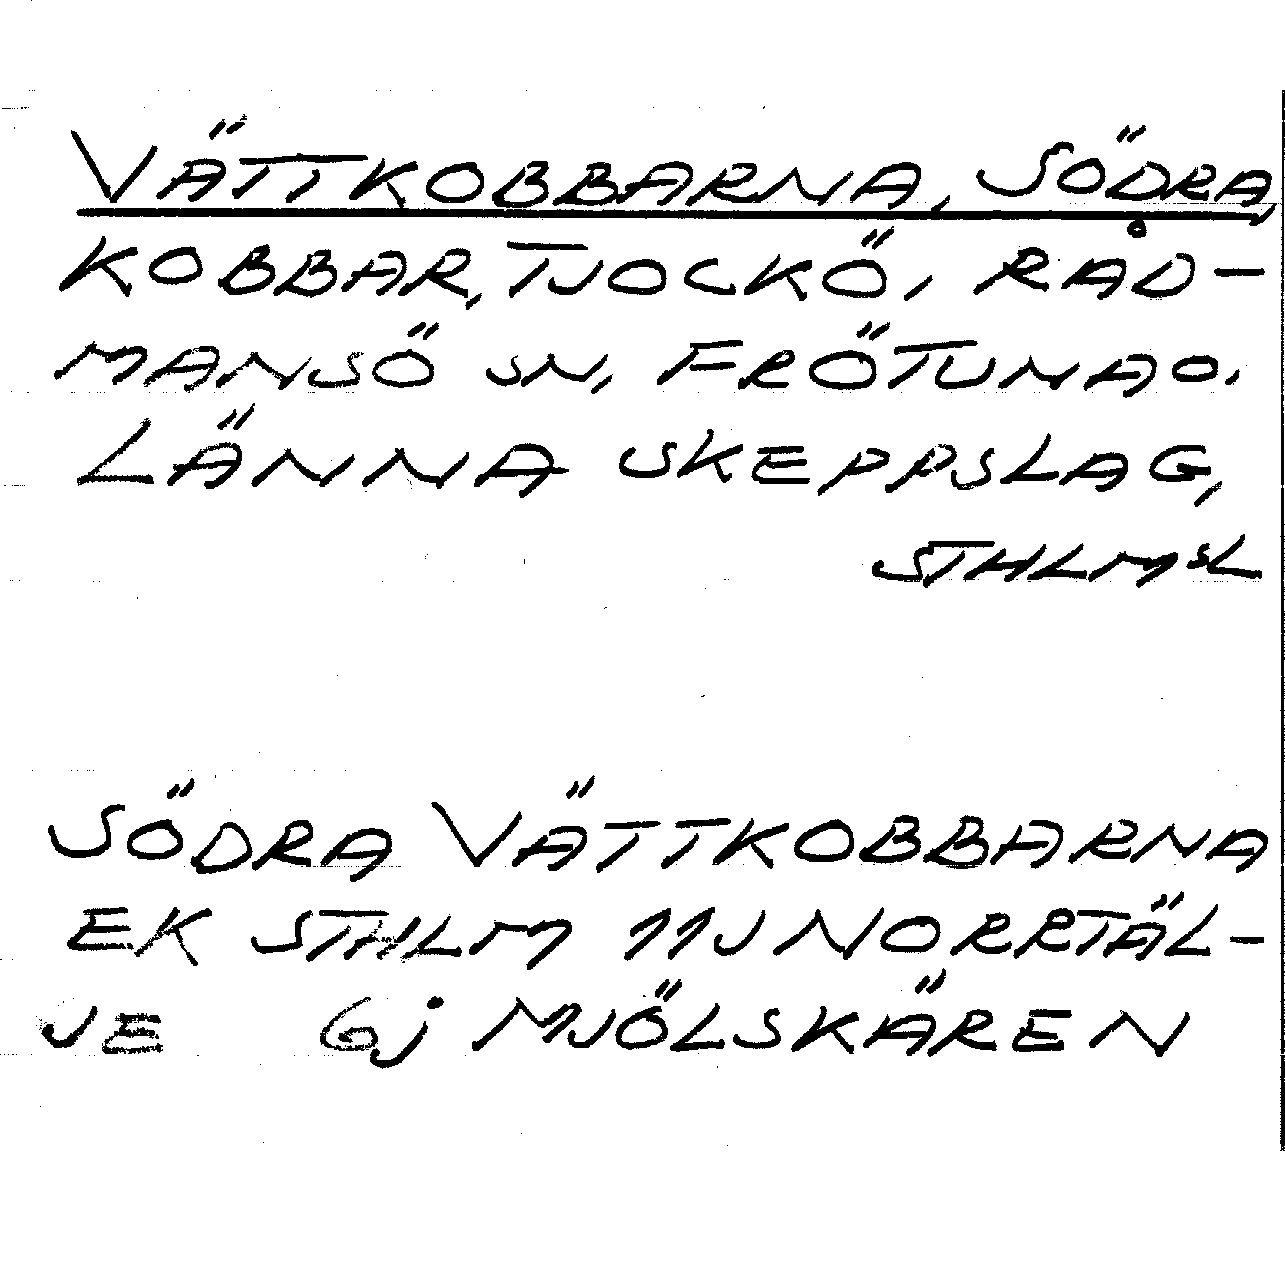 VÄTTKOBBARNA, SÖDRA,
KOBBAR, TJOCKÖ, RÅD-
MANSÖ SN, FRÖTUNA O.
LÄNNA SKEPPSLAG,
STHLMSL
SÖDRA VÄTTKOBBARNA
EK STHLM 11J NORRTÄL-
JE Gj MJÖLSKÄREN